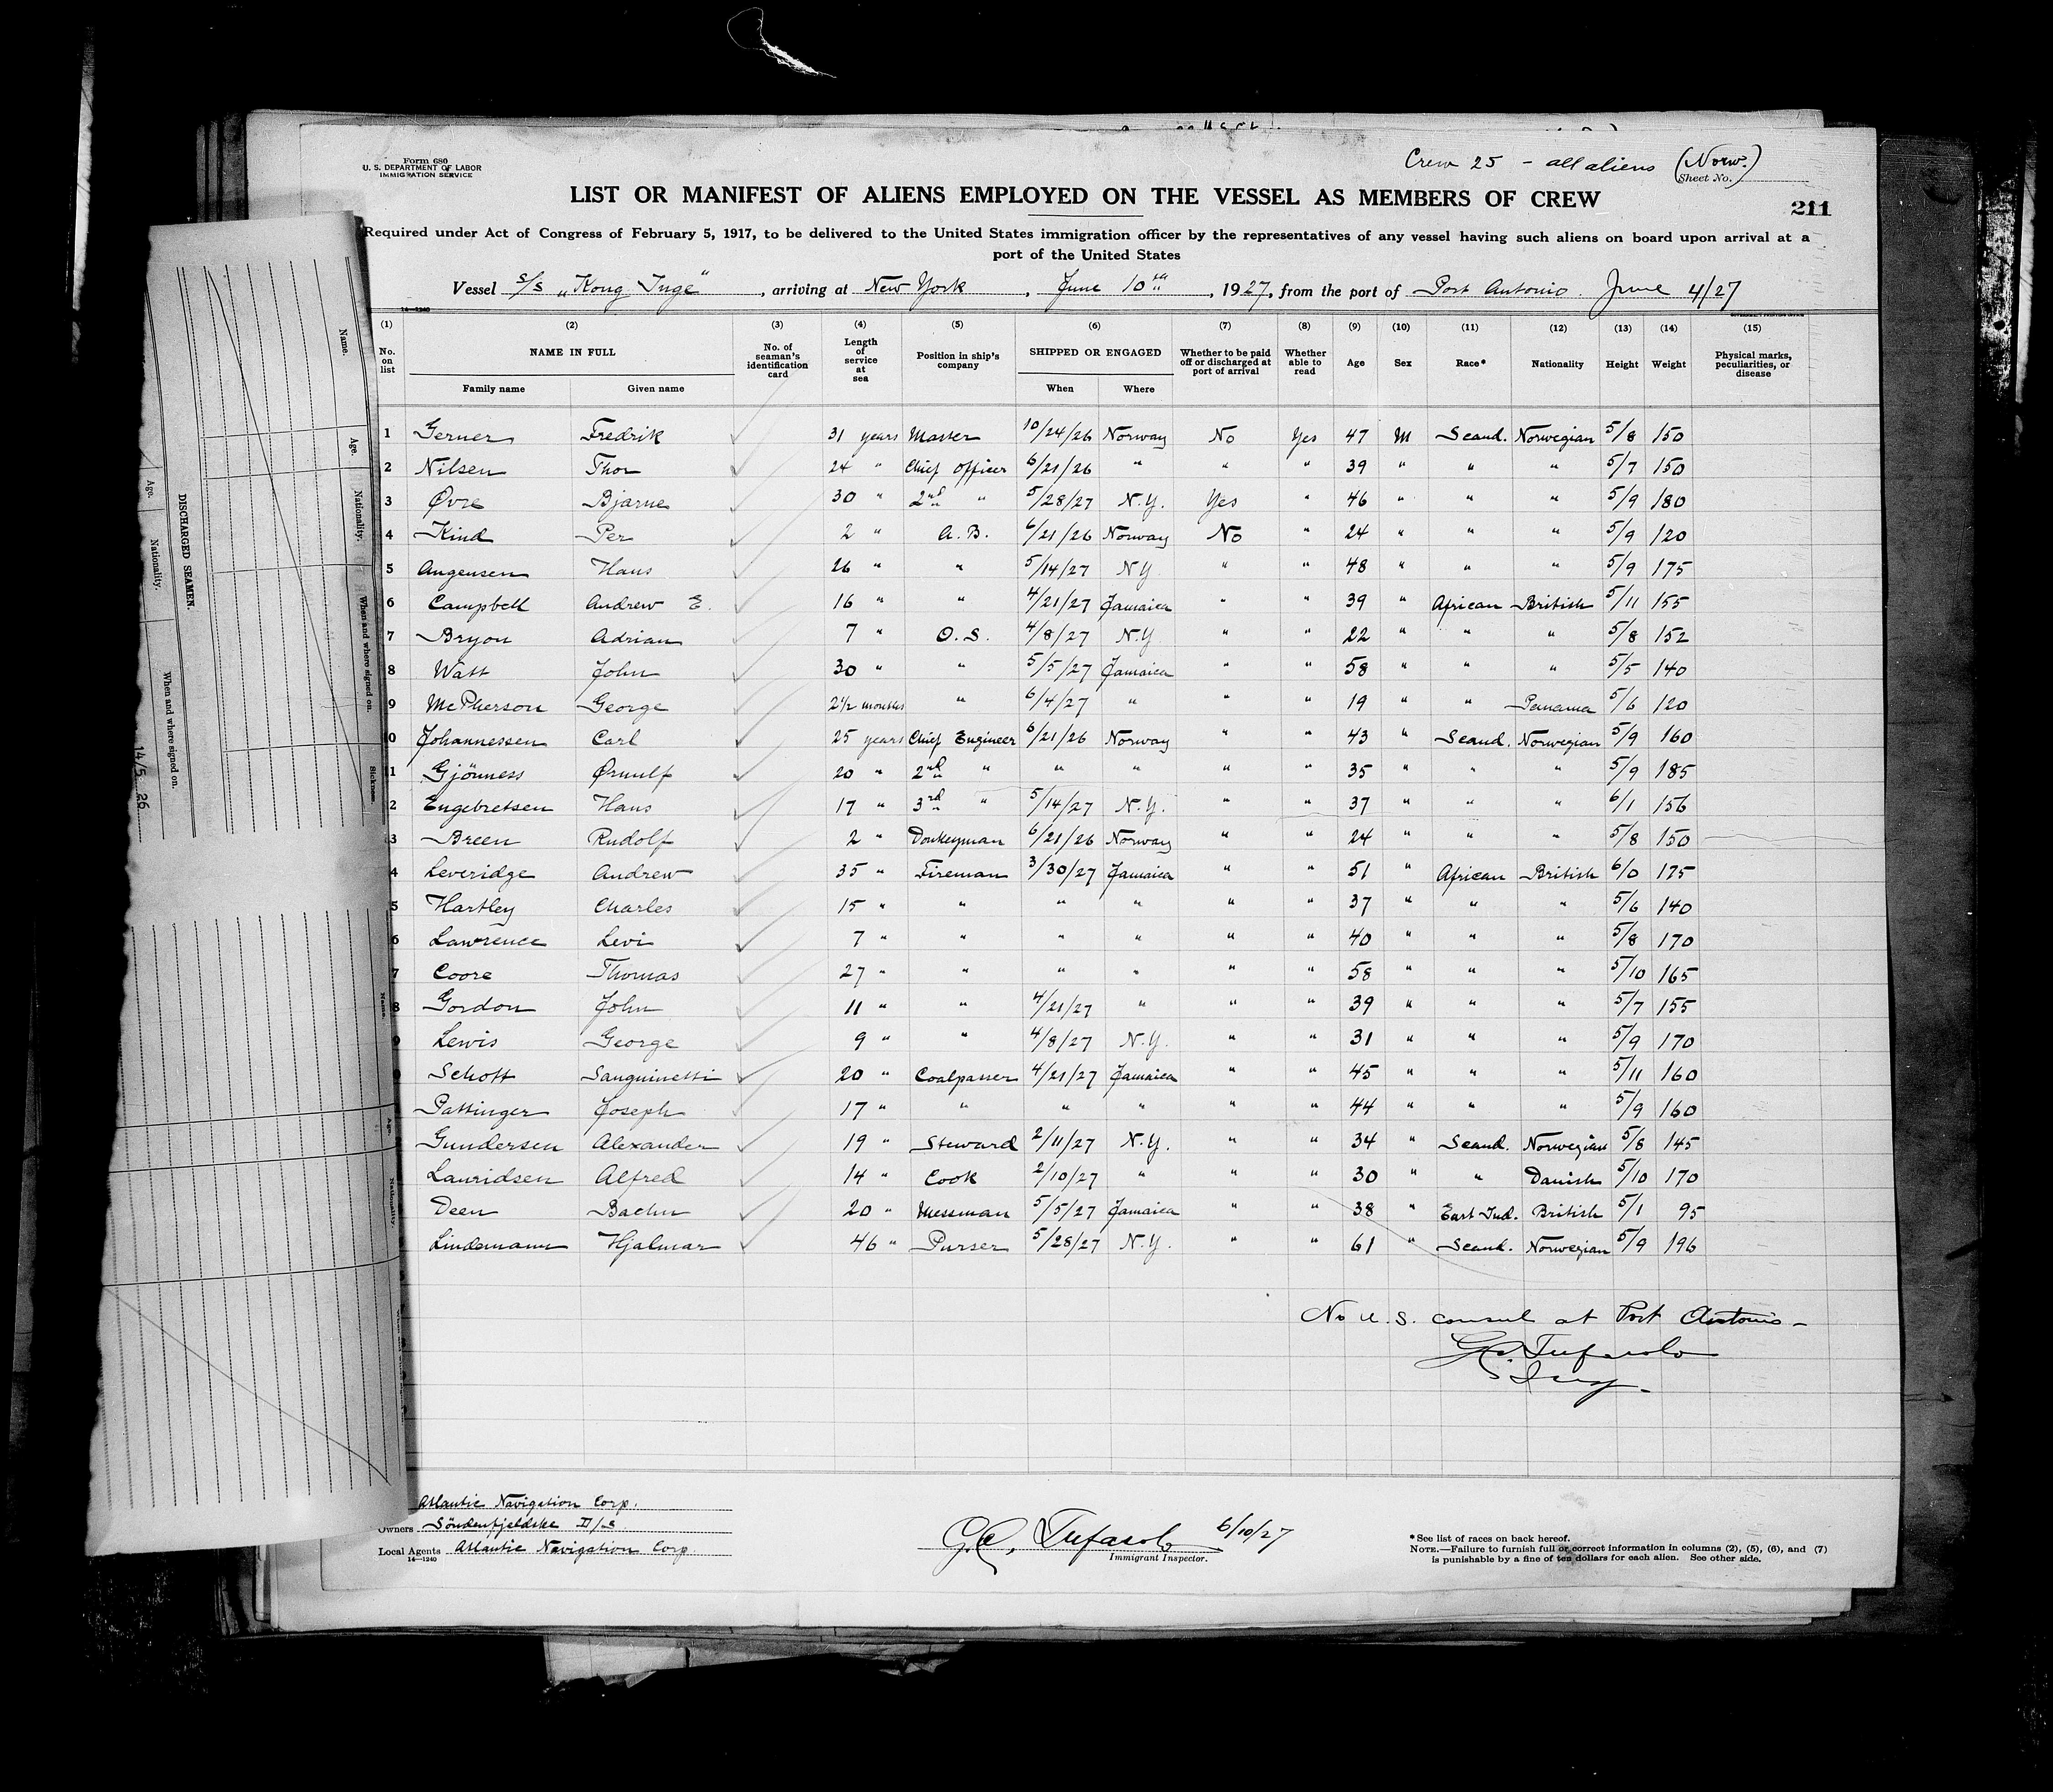 Form 680
U. S. DEPARTMENT OF LABOR
IMMIGRATION SERVICE
Crew 25 - all aliens (Norw.)
Sheet No.
LIST OR MANIFEST OF ALIENS EMPLOYED ON THE VESSEL AS MEMBERS OF CREW
211
Required under Act of Congress of February 5, 1917, to be delivered to the United States immigration officer by the representatives of any vessel having such aliens on board upon arrival at a
port of the United States
Vessel S/S „Kong Inge", arriving at New York, June 10th, 1927, from the port of Port Antonio. June 4/27
14—1240
(1) (2) (3) (4) (5) (6) (7) (8) (9) (10) (11) (12) (13) (14) (15)
No. on list NAME IN FULL Family name Given name No. of seaman's identification card Length of service at sea Position in ship's company SHIPPED OR ENGAGED When Where Whether to be paid off or discharged at port of arrival Whether able to read Age Sex Race* Nationality Height Weight Physical marks, peculiarities, or disease
1 Gerner Fredrik 31 years Master 10/24/26 Norway No Yes 47 M Scand. Norwegian 5/8 150
2 Nilsen Thor 24 " Chief Officer 6/21/26 " " " 39 " " " 5/7 150
3 Øvre Bjarne 30 " 2nd " 5/28/27 N.Y. Yes " 46 " " " 5/9 180
4 Kind Per 2 " A.B. 6/21/26 Norway No " 24 " " " 5/9 120
5 Angensen Hans 26 " " 5/14/27 N.Y. " " 48 " " " 5/9 175
6 Campbell Andrew E. 16 " " 4/21/27 Jamaica " " 39 " African British 5/11 155
7 Bryon Adrian 7 " O.S. 4/8/27 N.Y. " " 22 " " " 5/8 152
8 Watt John 30 " " 5/5/27 Jamaica " " 58 " " " 5/5 140
9 McPherson George 2½ months " 6/4/27 " " " 19 " " Panama 5/6 120
0 Johannessen Carl 25 years Chief Engineer 6/21/26 Norway " " 43 " Scand. Norwegian 5/9 160
1 Gjönness Ørnulf 20 " 2nd " " " " " 35 " " " 5/9 185
2 Engebretsen Hans 17 " 3rd " 5/14/27 N.Y. " " 37 " " " 6/1 156
3 Breen Rudolf 2 " Donkeyman 6/21/26 Norway " " 24 " " " 5/8 150
4 Leveridge Andrew 35 " Fireman 3/30/27 Jamaica " " 51 " African British 6/0 175
5 Hartley Charles 15 " " " " " " 37 " " " 5/6 140
6 Lawrence Levi 7 " " " " " " 40 " " " 5/8 170
7 Coore Thomas 27 " " " " " " 58 " " " 5/10 165
8 Gordon John 11 " " 4/21/27 " " " 39 " " " 5/7 155
9 Lewis George 9 " " 4/8/27 N.Y. " " 31 " " " 5/9 170
Schott Sanguinetti 20 " Coalpasser 4/21/27 Jamaica " " 45 " " " 5/11 160
Pattinger Joseph 17 " " " " " " 44 " " " 5/9 160
Gundersen Alexander 19 " Steward 2/11/27 N.Y. " " 34 " Scand. Norwegian 5/8 145
Lauridsen Alfred 14 " Cook 2/10/27 " " " 30 " " Danish 5/10 170
Deen Bachu 20 " Messman 5/5/27 Jamaica " " 38 " East Ind. British 5/1 95
Lindemann Hjalmar 46 " Purser 5/28/27 N.Y. " " 61 " Scand. Norwegian 5/9 196
No U.S. consul at Port Antonio -
G.C. Tufarolo
Insp.
Atlantic Navigation Corp.
Owners Söndenfjeldske D/S
Local Agents Atlantic Navigation Corp.
14—1240
G.C. Tufarolo 6/10/27
Immigrant Inspector.
*See list of races on back hereof.
NOTE.—Failure to furnish full or correct information in columns (2), (5), (6), and (7)
is punishable by a fine of ten dollars for each alien. See other side.
DISCHARGED SEAMEN.
Name. Age. Nationality. When and where signed on. Sickness.
Age. Nationality. When and where signed on.
14/5. 26
Name. Age. Nationality.